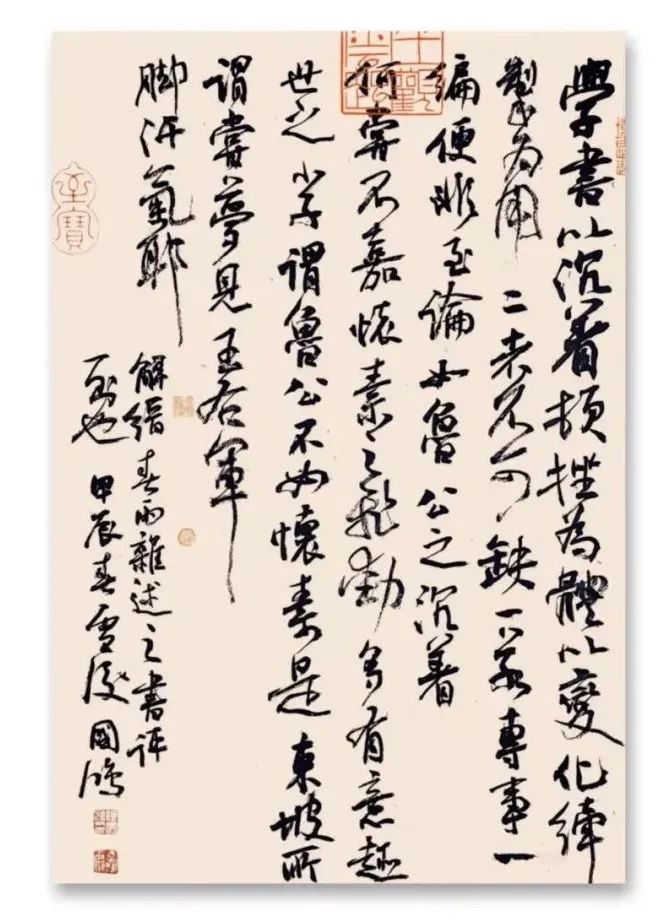 學書以沉着頓挫為體以變化牽
製為用二者不可缺一若專事一
偏便非至論如魯公之沉着
何嘗不嘉懷素之飛動多有意趣
世之小子謂魯公不如懷素是東坡所
謂嘗夢見王右軍
脚汗氣耶
解縉春雨雜述之書評
也甲辰春雪後國鴻